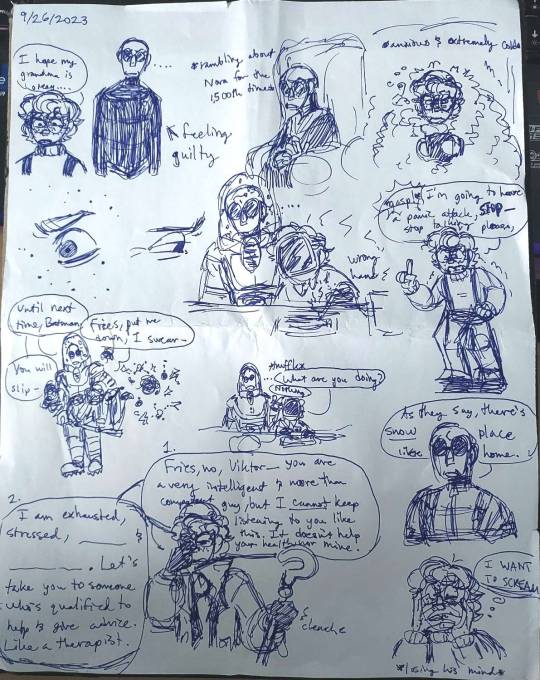 9/26/2023
I hope my
grandma is
okay....
....
*rambling about
Nora for the
1,500th time*
*anxious & extremely cold*
feeling
guilty
*gasp* I'm going to have
a panic attack, STOP—
stop talking please,
wrong
hand
Until next
time, Batman!
Fries, put me
down, I swear—
You will
slip—
*muffle*
...What are you doing?
Nothing
As they say, there's
snow place
like home.
1.
Fries, no, Viktor— you are
a very intelligent & more than
competent guy, but I cannot keep
listening to you like
this. It doesn't help
your health or mine.
2.
I am exhausted,
stressed, ____ &
____. Let's
take you to someone
who's qualified to
help & give advice.
Like a therapist.
clenche
I WANT
TO SCREAM
*losing his mind*